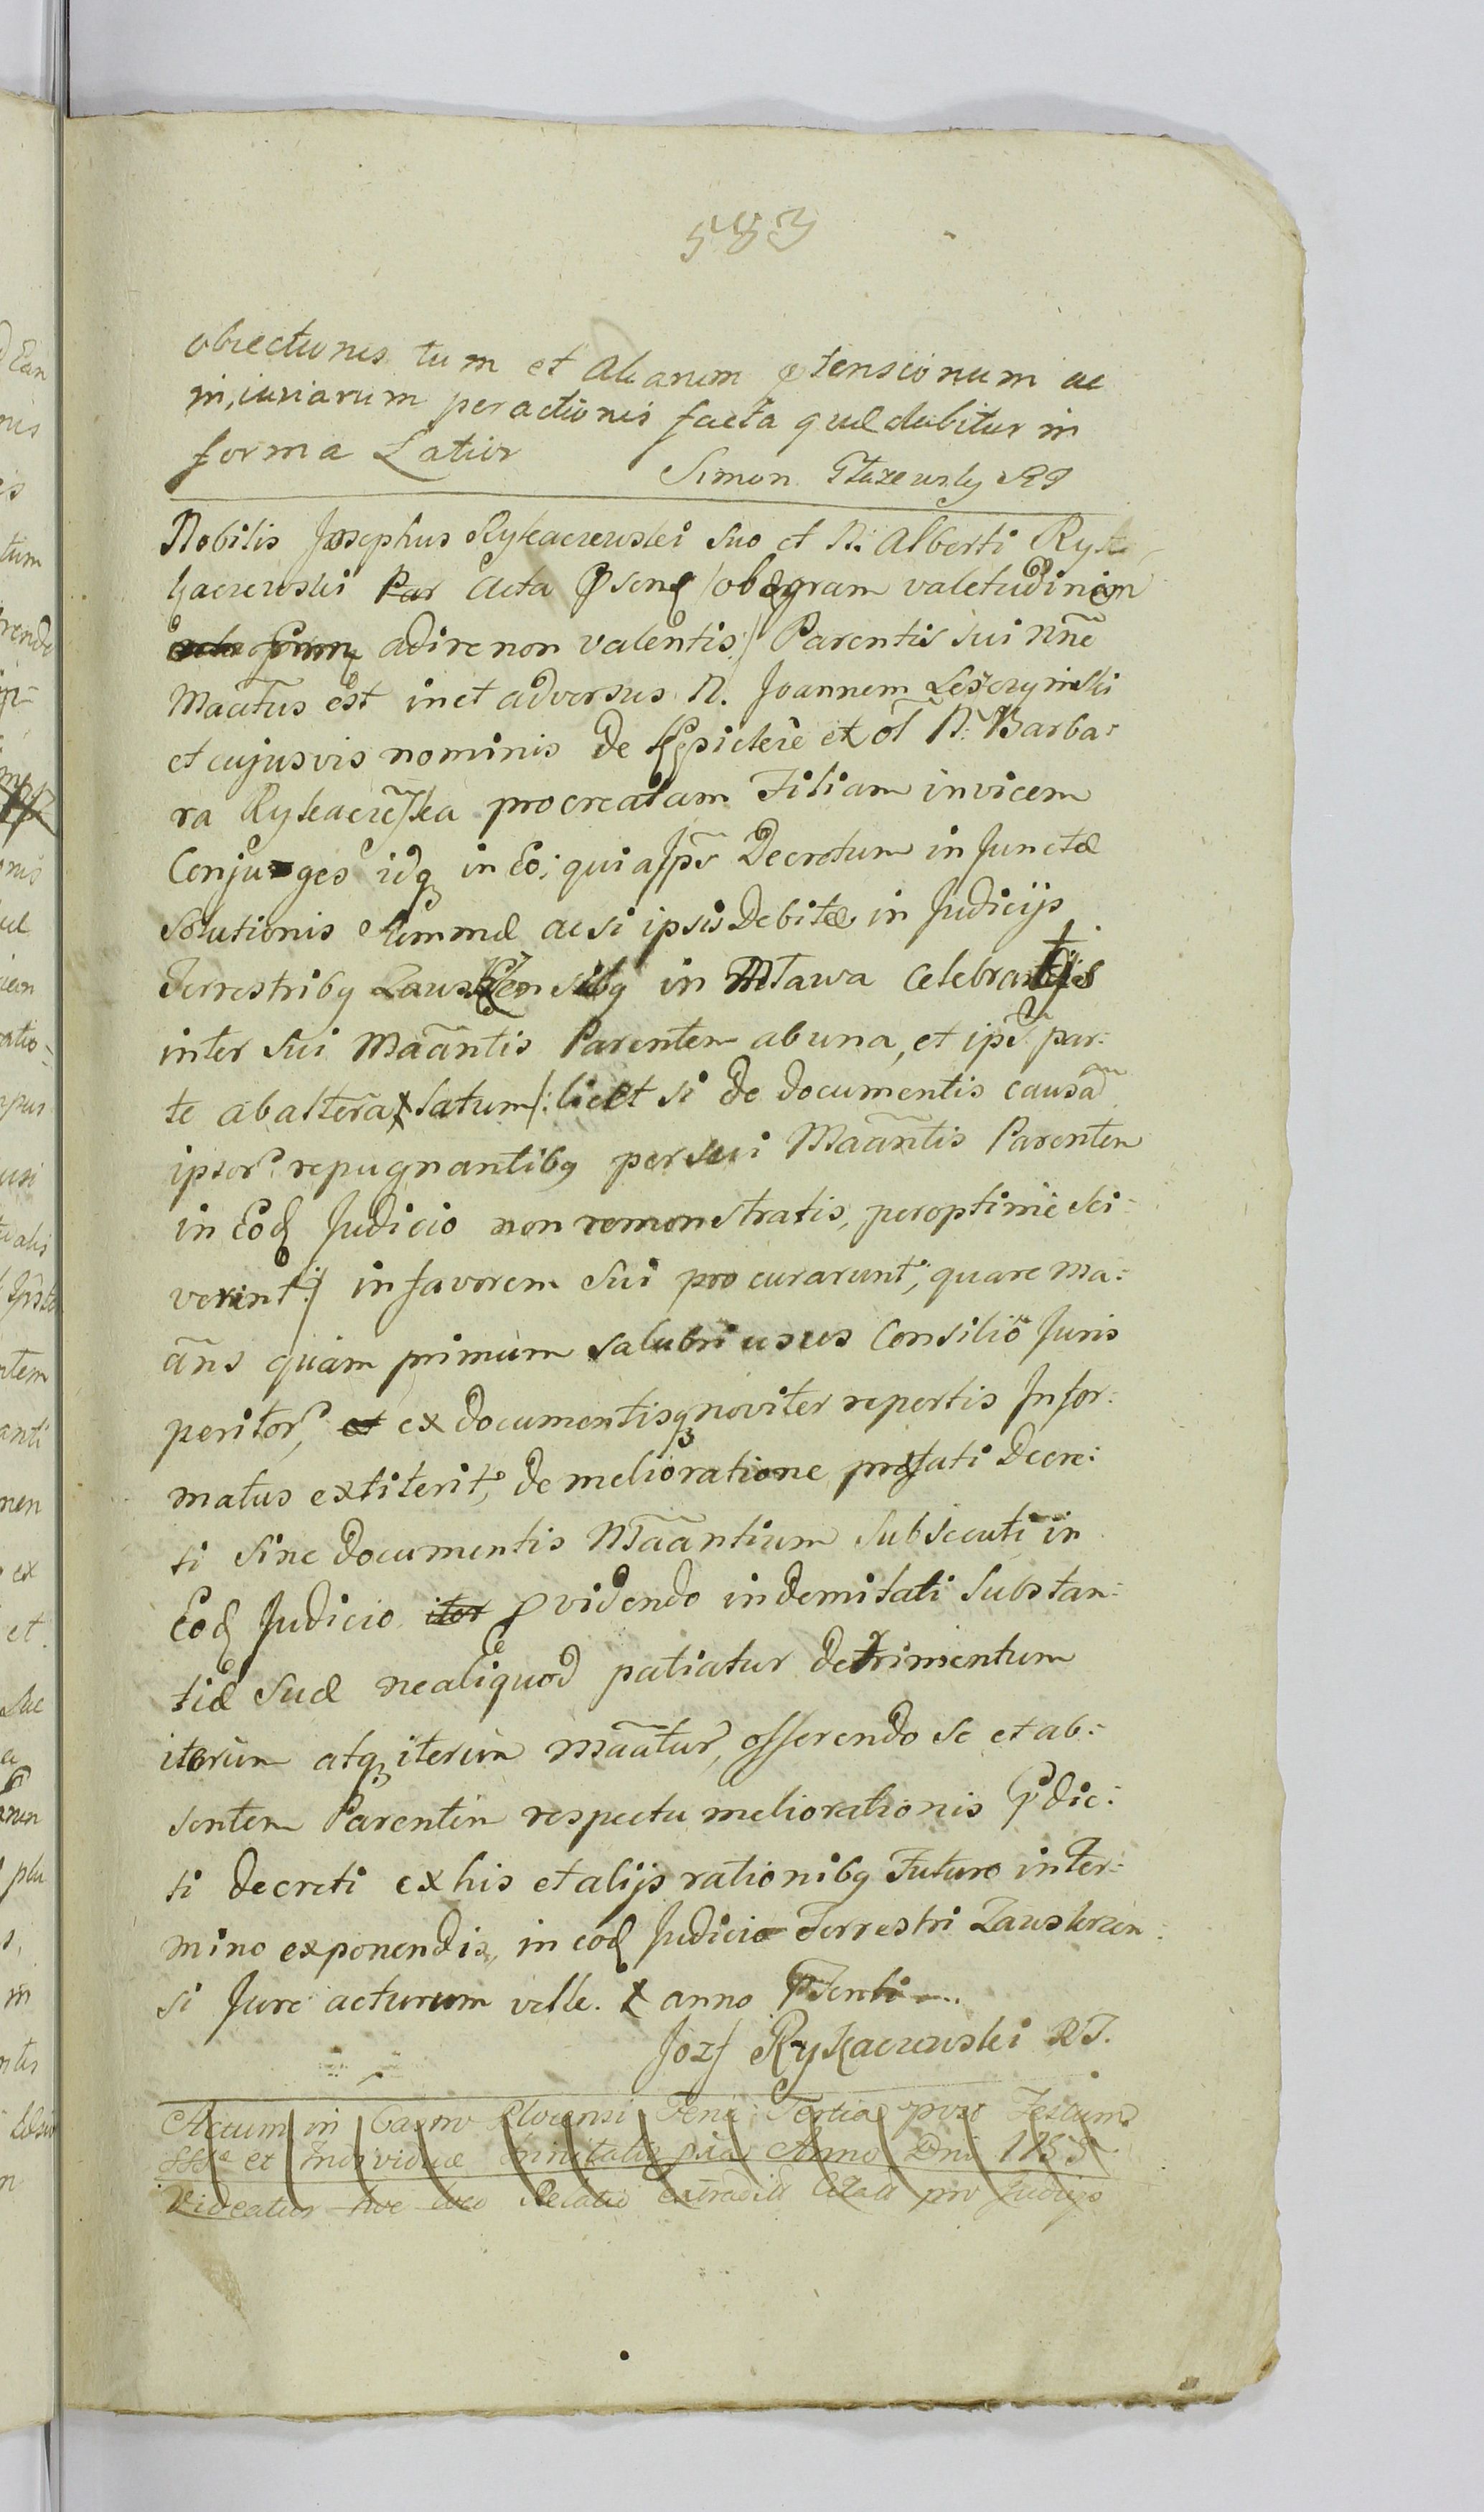 583
obiectionis tum et aliarum ptensionum ac
iniuriarum peractionis facta quæ dabitur in
forma Latior
Simon
Nobilis Josephus Rykaczewski suo et N. Alberti Ryka
kaczewski Par acta pseñs /ob ægram valetudinem
adire non valentis:/ Parentis sui nñe
Maātus est in et adversus N. Joannem Leszczynski
et cujusvis nominis de et ol N. Barba:
ra Rykacze/ka procreatam Filiam invicem
Conjuges idq in Eo: quia Ips Decretum injunctæ
Solutionis Summæ ac si ipsis Debitæ in Judicijs
Terrestribq Zauskrzensibq in Mlawa Celebratis
inter sui Maāntis Parentem ab una, et ipõr par:
te ab altera latum /: licet si de documentis causã
ipsor repugnantibq per sui Maāntis Parentem
in Eod Judicio non remonstratis, peroptime sci:
verint:/ in favorem sui procurarunt; quare Ma:
āns quam primum salubri usus Consilio Juris
peritor, et ex documentisq noviter repertis Infor:
matus extiterit, de melioratione præfati Decre:
ti sine documentis Maāntium subsecuti in
Eod Judicio iter pvidendo indemitati substan:
tiæ suæ ne aliquod patiatur detrimentum
iterum atq iterum Maātur, offerendo se et ab:
sentem Parentem respectu meliorationis pdic:
ti decreti ex his et alijs rationibq Futuro in ter:
mino exponendis, in eod Judicio Terrestri Zauskrzen:
si Jure acturum velle. anno psenti
Jozf Rykaczewski RT.
Actum in Castro Plocensi Feria Tertia post Festum
SSSæ et Individuæ Trinitatis pxa Anno Dni 1755
Videatur hoc loco Relatio pro Judicijs